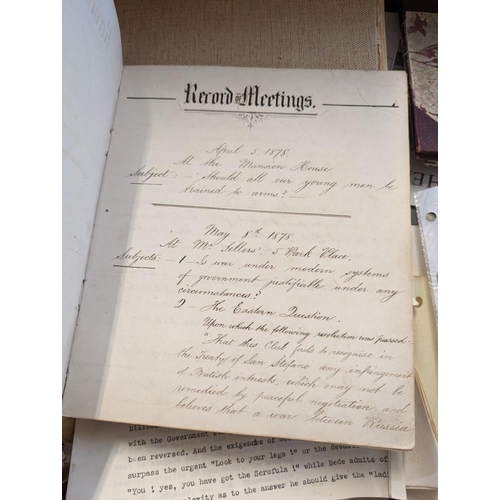 Record of Meetings.
April 5. 1878.
At the Mansion House
Subject:— Should all our young men be
trained to arms?—
May 8th 1878.
At Mr Sellers', 5 Park Place.
Subjects:— 1— Is war under modern systems
of government justifiable under any
circumstances?
2— The Eastern Question.
Upon which the following resolution was passed—
"That this Club fails to recognise in
the Treaty of San Stefano any infringement
of British interests, which may not be
remedied by peaceful negotiation, and
believes that a war between Russia
with the Government
been reversed. And the exigences of
surpass the urgent "Look to your legs!" or the
"You ! yes, you have got the Scrofula !" while Bede admits of
as to the answer he should give the "lad